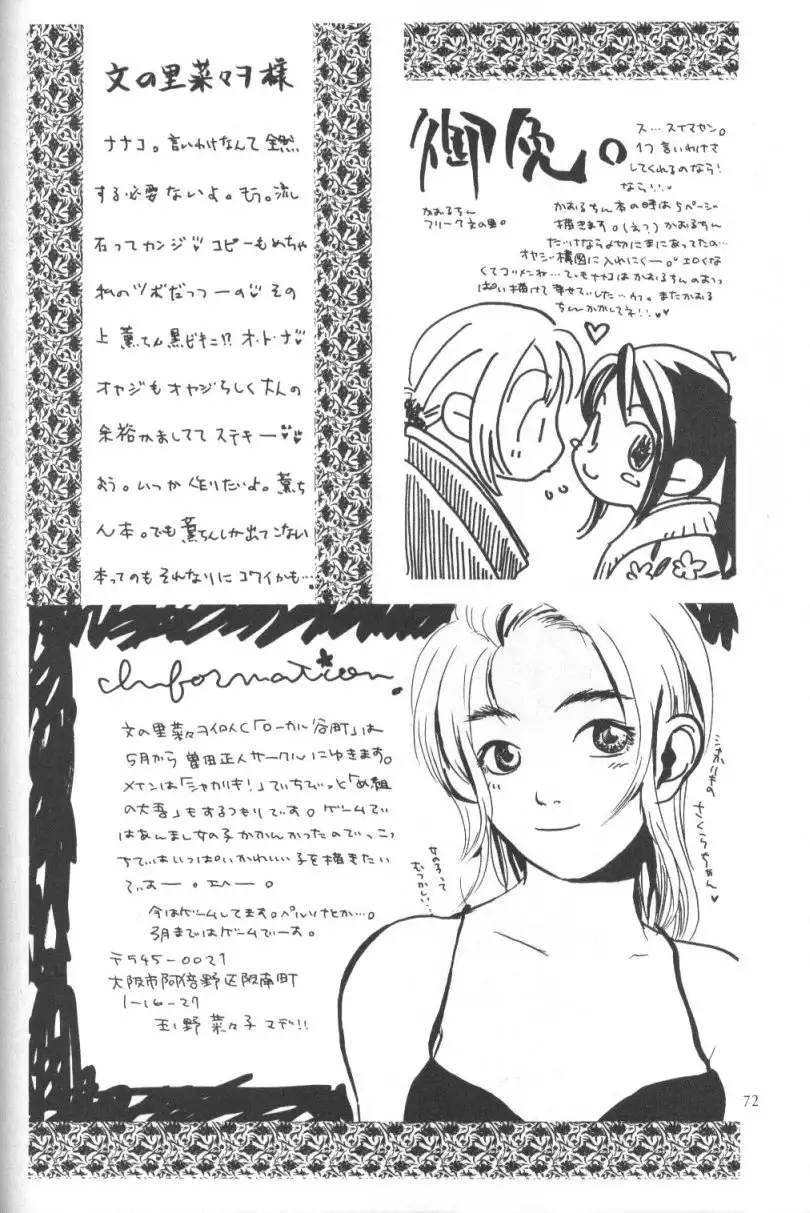 文の里菜々ヲ様
ナナコ。言いわけなんて全然
する必要ないよ。もう。流
石ってカンジ♥コピーもめちゃ
私のツボだっつーの♥その
上薫ちん黒ビキニ!?オ・ト・ナ♥
オヤジもオヤジらしく大人の
余裕かましててステキー♥♥
おう。いつか作りたいよ。薫ち
ん本。でも薫ちんしか出てこない
本ってのもそれなりにコワイかも…。
御免。
かおるちん
フリーク文の里。
ス…スイマセン。
1つ言いわけさ
してくれるのなら!
なら!!♥
かおるちん本の時は5ページ
描きます。(え?)かおるちん
だけなら〆切にまにあってたの…
オヤジ構図に入れにくー。エロくな
くてゴメンね…でもナナコはかおるちんのおっ
ぱい描けて幸せでした…。またかおる
ちんかかしてネ!!♥
Information.
文の里菜々ヲイロイC「ローカル谷町」は
5月から曽田正人サークルにゆきます。
メインは「シャカリキ!」でいちびっと「め組
の大吾」もするつもりです。ゲームでい
はあんまし女の子かかんかったので、こっ
ちではいっぱいかわいい子を描きたい
でぃすー。エヘー。
今はゲームしてます。ペルソナとか…。
3月まではゲームでーす。
〒545-0021
大阪市阿倍野区阪南町
1-16-27
玉野菜々子マデ!!
シャカリキの
さくらちゃん♥
女の子って
むつかしい…
72